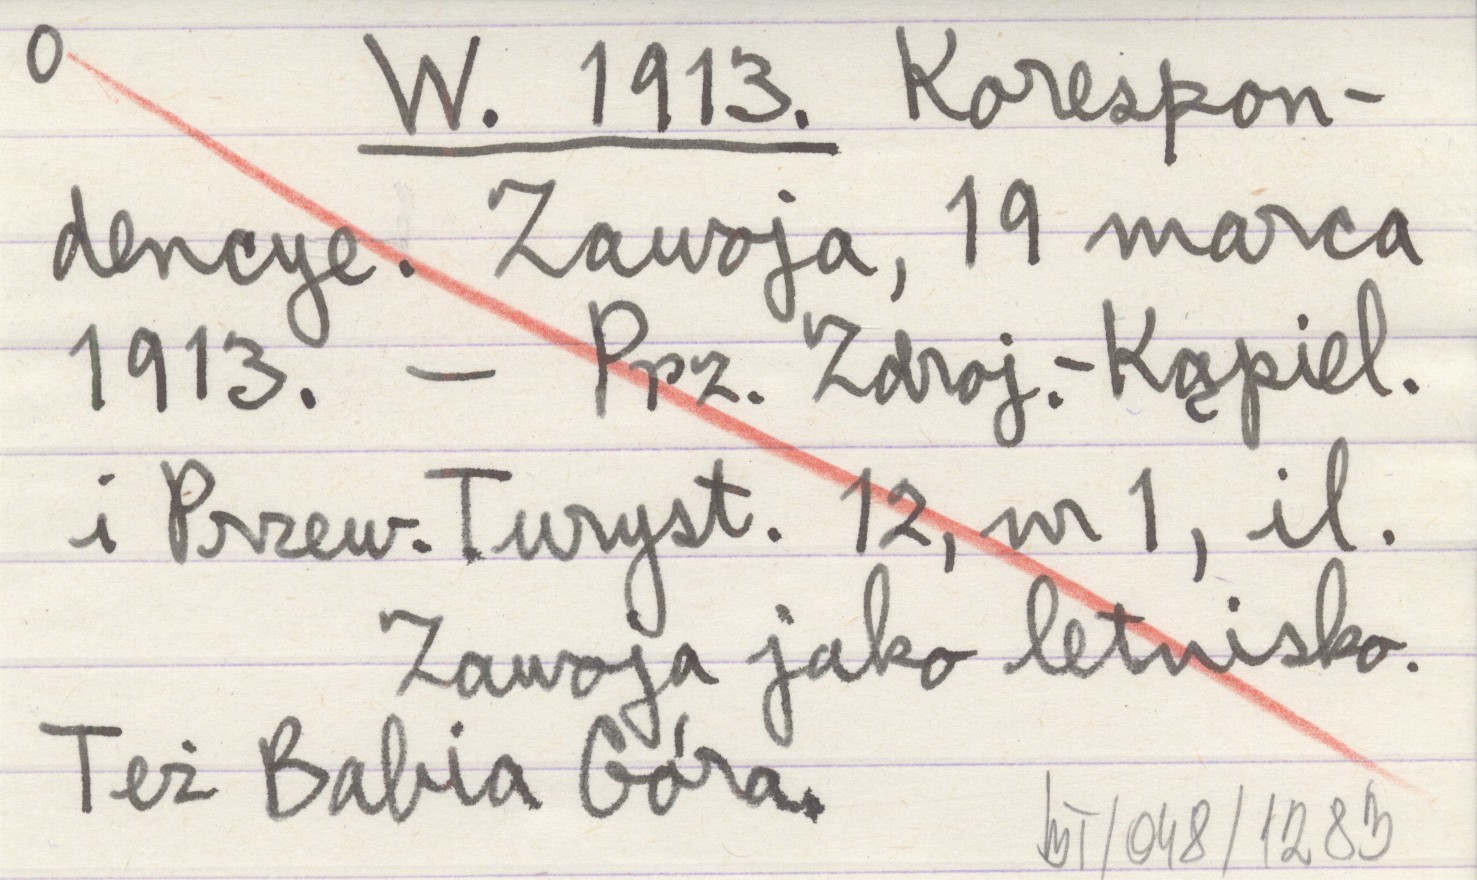 O W. 1913. Korespon-
dencye. Zawoja, 19 marca
1913. — Prz. Zdroj.-Kąpiel.
i Przew. Turyst. 12, nr 1, il.
Zawoja jako letnisko.
Też Babia Góra.
/048/1283